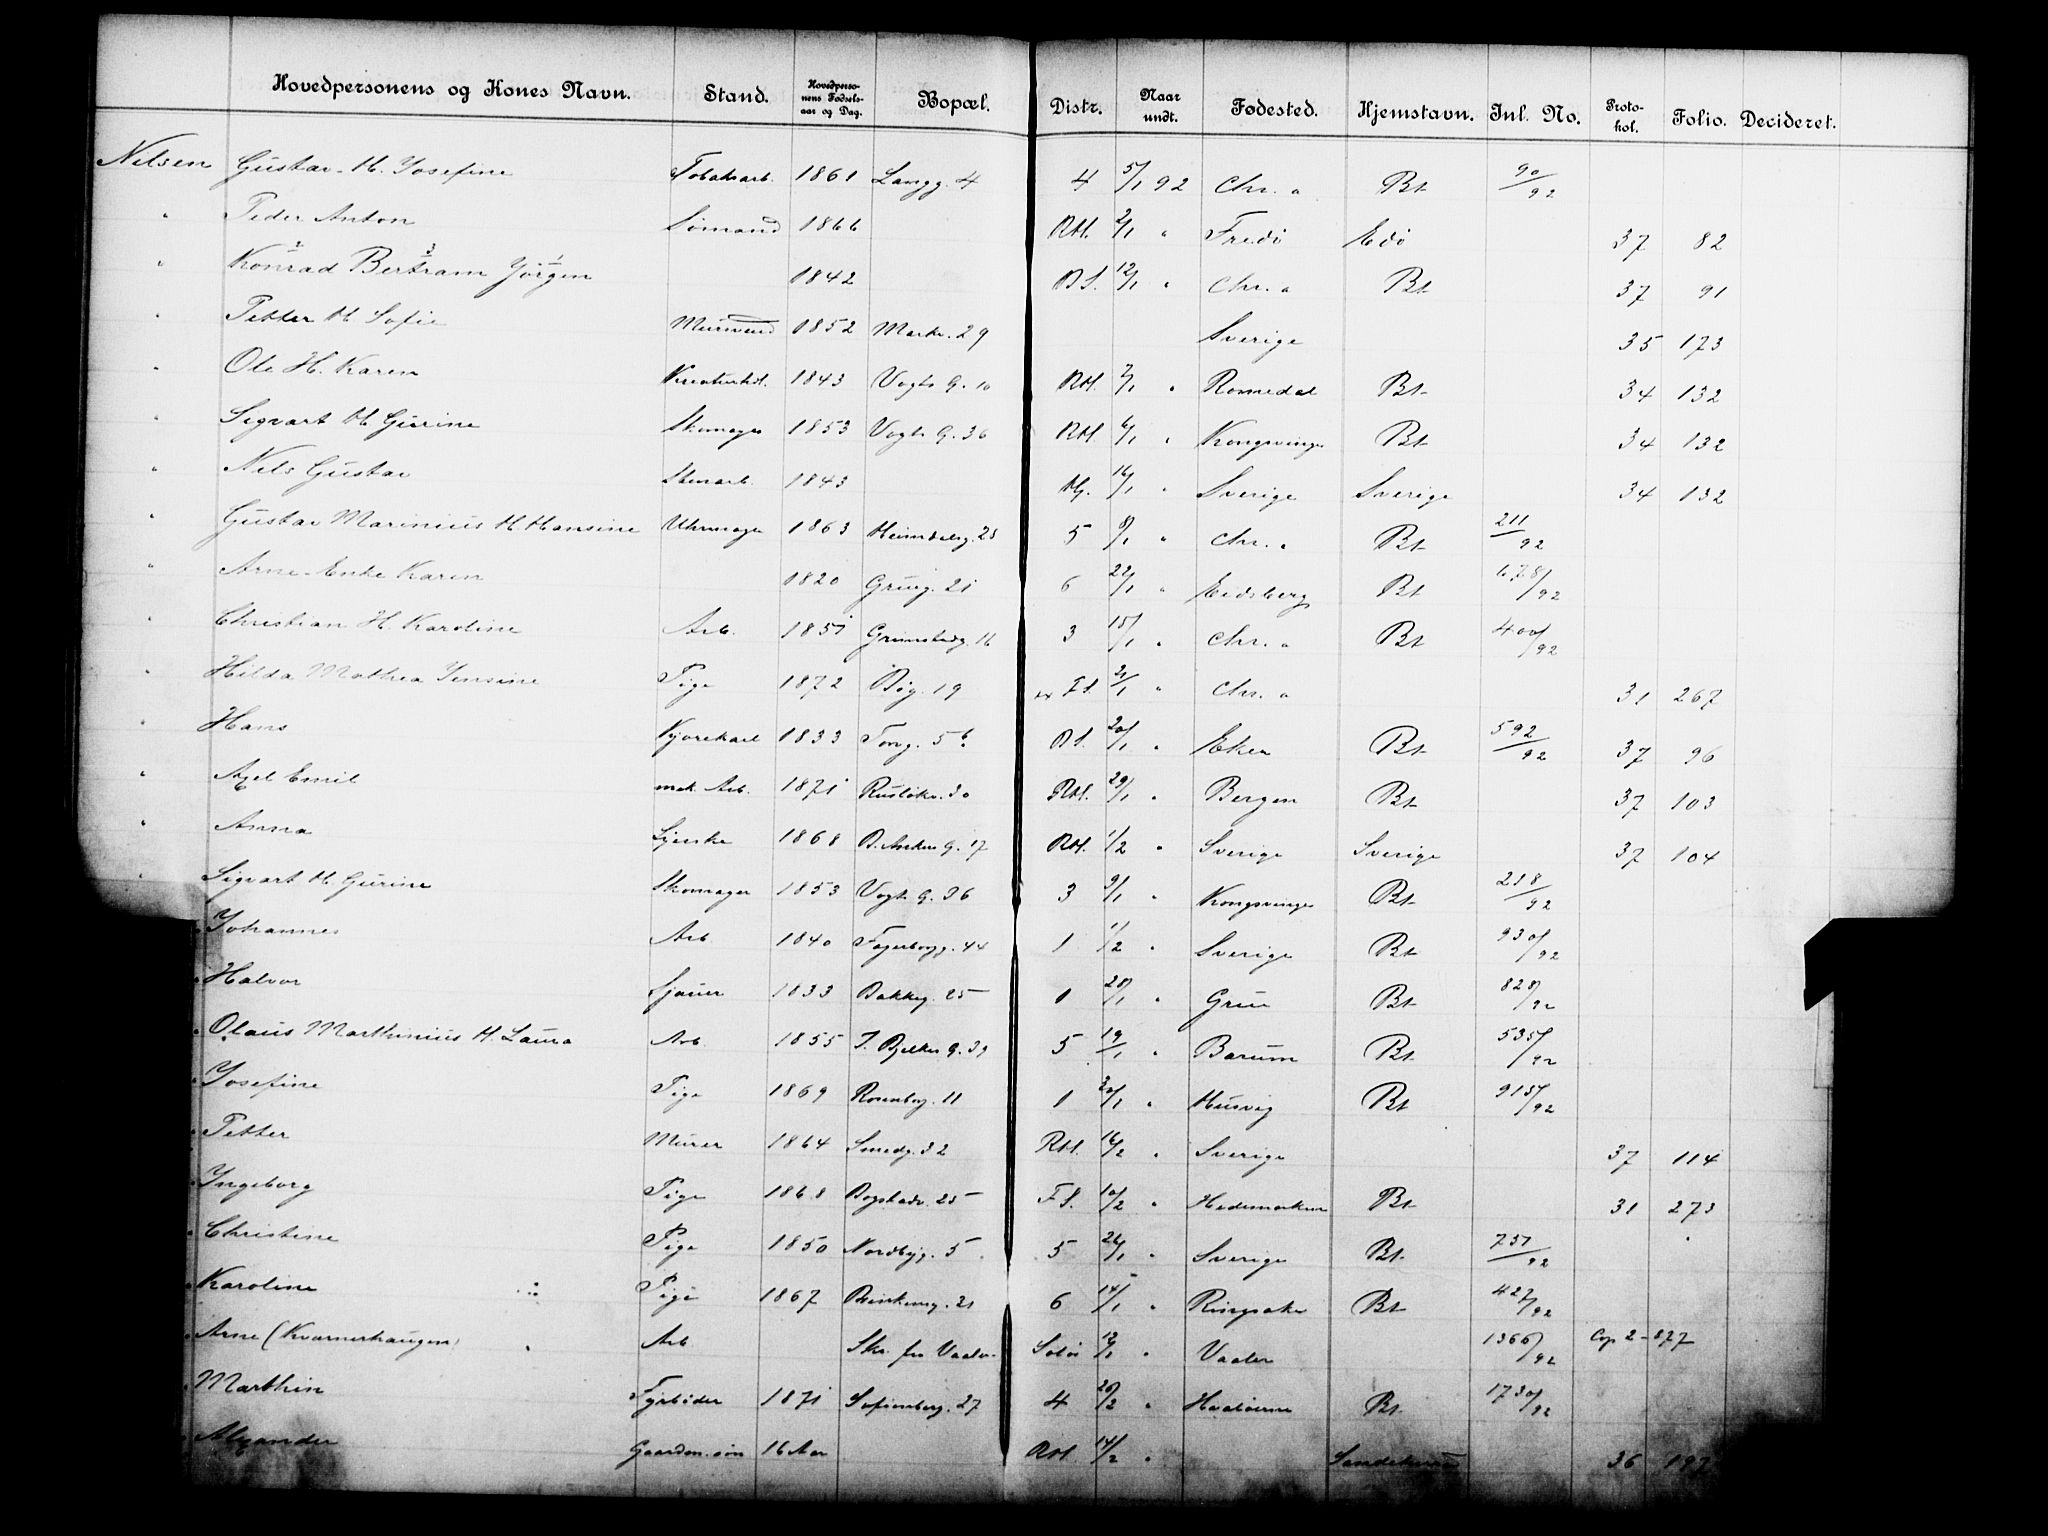 Hovedpersonens og Kones Navn. Stand. Hovedpersonens Fødselsaar og Dag. Bopæl. Distr. Naar undt. Fødested. Hjemstavn. Inl. No. Protokol. Folio. Decideret.
Nilsen Gustav H. Josefine Tobaksarb. 1861 Langg. 4 4 5/1 92 Chr. a Bt 90/92
" Peder Anton Sømand 1866 Rtl. 2/1 " Fredr Edø 37 82
" Konrad Bertram Jørgen 1842 D S. 12/1 " Chr. a Bt 37 91
" Petter H Sofie Mursvend 1852 Markv. 29 Sverige 35 173
" Ole H. Karen 1843 Vogts G. 10 Rtl. 7/1 " Romedal Bt 34 132
" Sigvart H Gurine Skomager 1853 Vogts G. 36 Rtl. 6/1 " Kongsvinger Bt 34 132
" Nils Gustav Stenarb. 1843 16/1 " Sverige Sverige 34 132
" Gustav Marinius H Hansine Uhrmager 1863 Heimdalsg. 25 5 8/1 " Chr. a Bt 211/92
" Arne Enke Karen 1820 Grüng. 21 6 22/1 " Eidsberg Bt 678/92
" Christian H. Karoline Arb. 1851 Grimstadg. 16 3 15/1 " Chr. a Bt 400/92
" Hilda Mathea Jensine Pige 1872 Bøg. 19 F S. 2/1 " Chr. a 31 267
" Hans Kjørekarl 1833 Torvg. 5 b D S. 20/1 " Eker Bt 592/92 37 96
" Axel Emil mek Arb. 1871 Rusløkv. 30 Rtl. 29/1 " Bergen Bt 37 103
" Anna Syerske 1868 B. Ankers G. 17 Rtl. 1/2 " Sverige Sverige 37 104
" Sigvart H. Gurine Skomager 1853 Vogts G. 36 3 9/1 " Kongsvinger Bt 218/92
" Johannes Arb 1840 Fagerborgg. 44 1 1/2 " Sverige Bt 930/92
" Halvor Sjauer 1833 Bakkeg. 25 1 28/1 " Grue Bt 828/92
" Olaus Marthinius H. Laura Arb 1855 J. Bjelkes G. 39 5 19/1 " Bærum Bt 535/92
" Josefine Pige 1869 Rosenborg. 11 1 30/1 " Husvig Bt 915/92
" Petter Murer 1864 Smedg. 32 Rtl. 16/2 " Sverige 37 114
" Ingeborg Pige 1868 Bogstadv. 25 F S. 10/2 " Hedemarken Bt 31 273
" Christine Pige 1850 Nordbyg. 5 5 26/1 " Sverige Bt 751/92
" Karoline Pige 1867 21 6 14/1 " Ringsaker Bt 427/92
" Arne (Kvarnerhaugen) Arb Skr. fra Vaaler Solør 12/1 " Vaaler 1366/92 Cop 2-877
" Marthin Fyrbøder 1871 Sofienberg. 27 4 20/2 " Hvaløerne Bt 1730/92
" Alexander Gaardm. søn 16 Aar Rtl 14/2 " Sandeherred 36 197